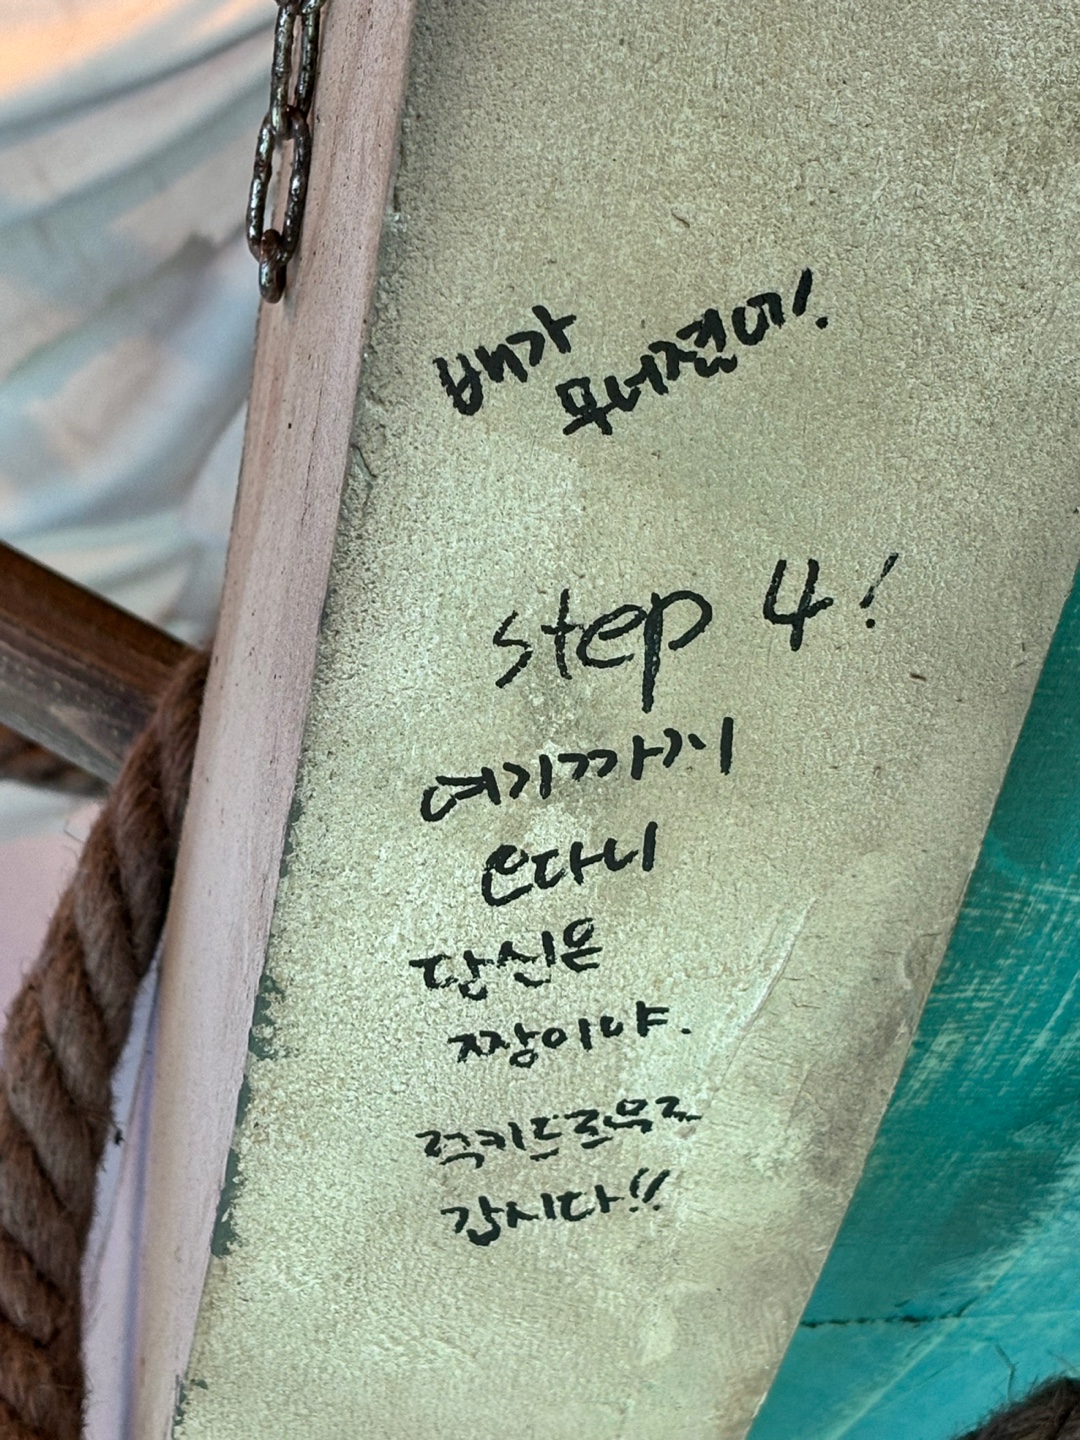 배가
무너졌네!
step 4!
여기까지
온다니
당신은
짱이야.
럭키드로우로
갑시다!!